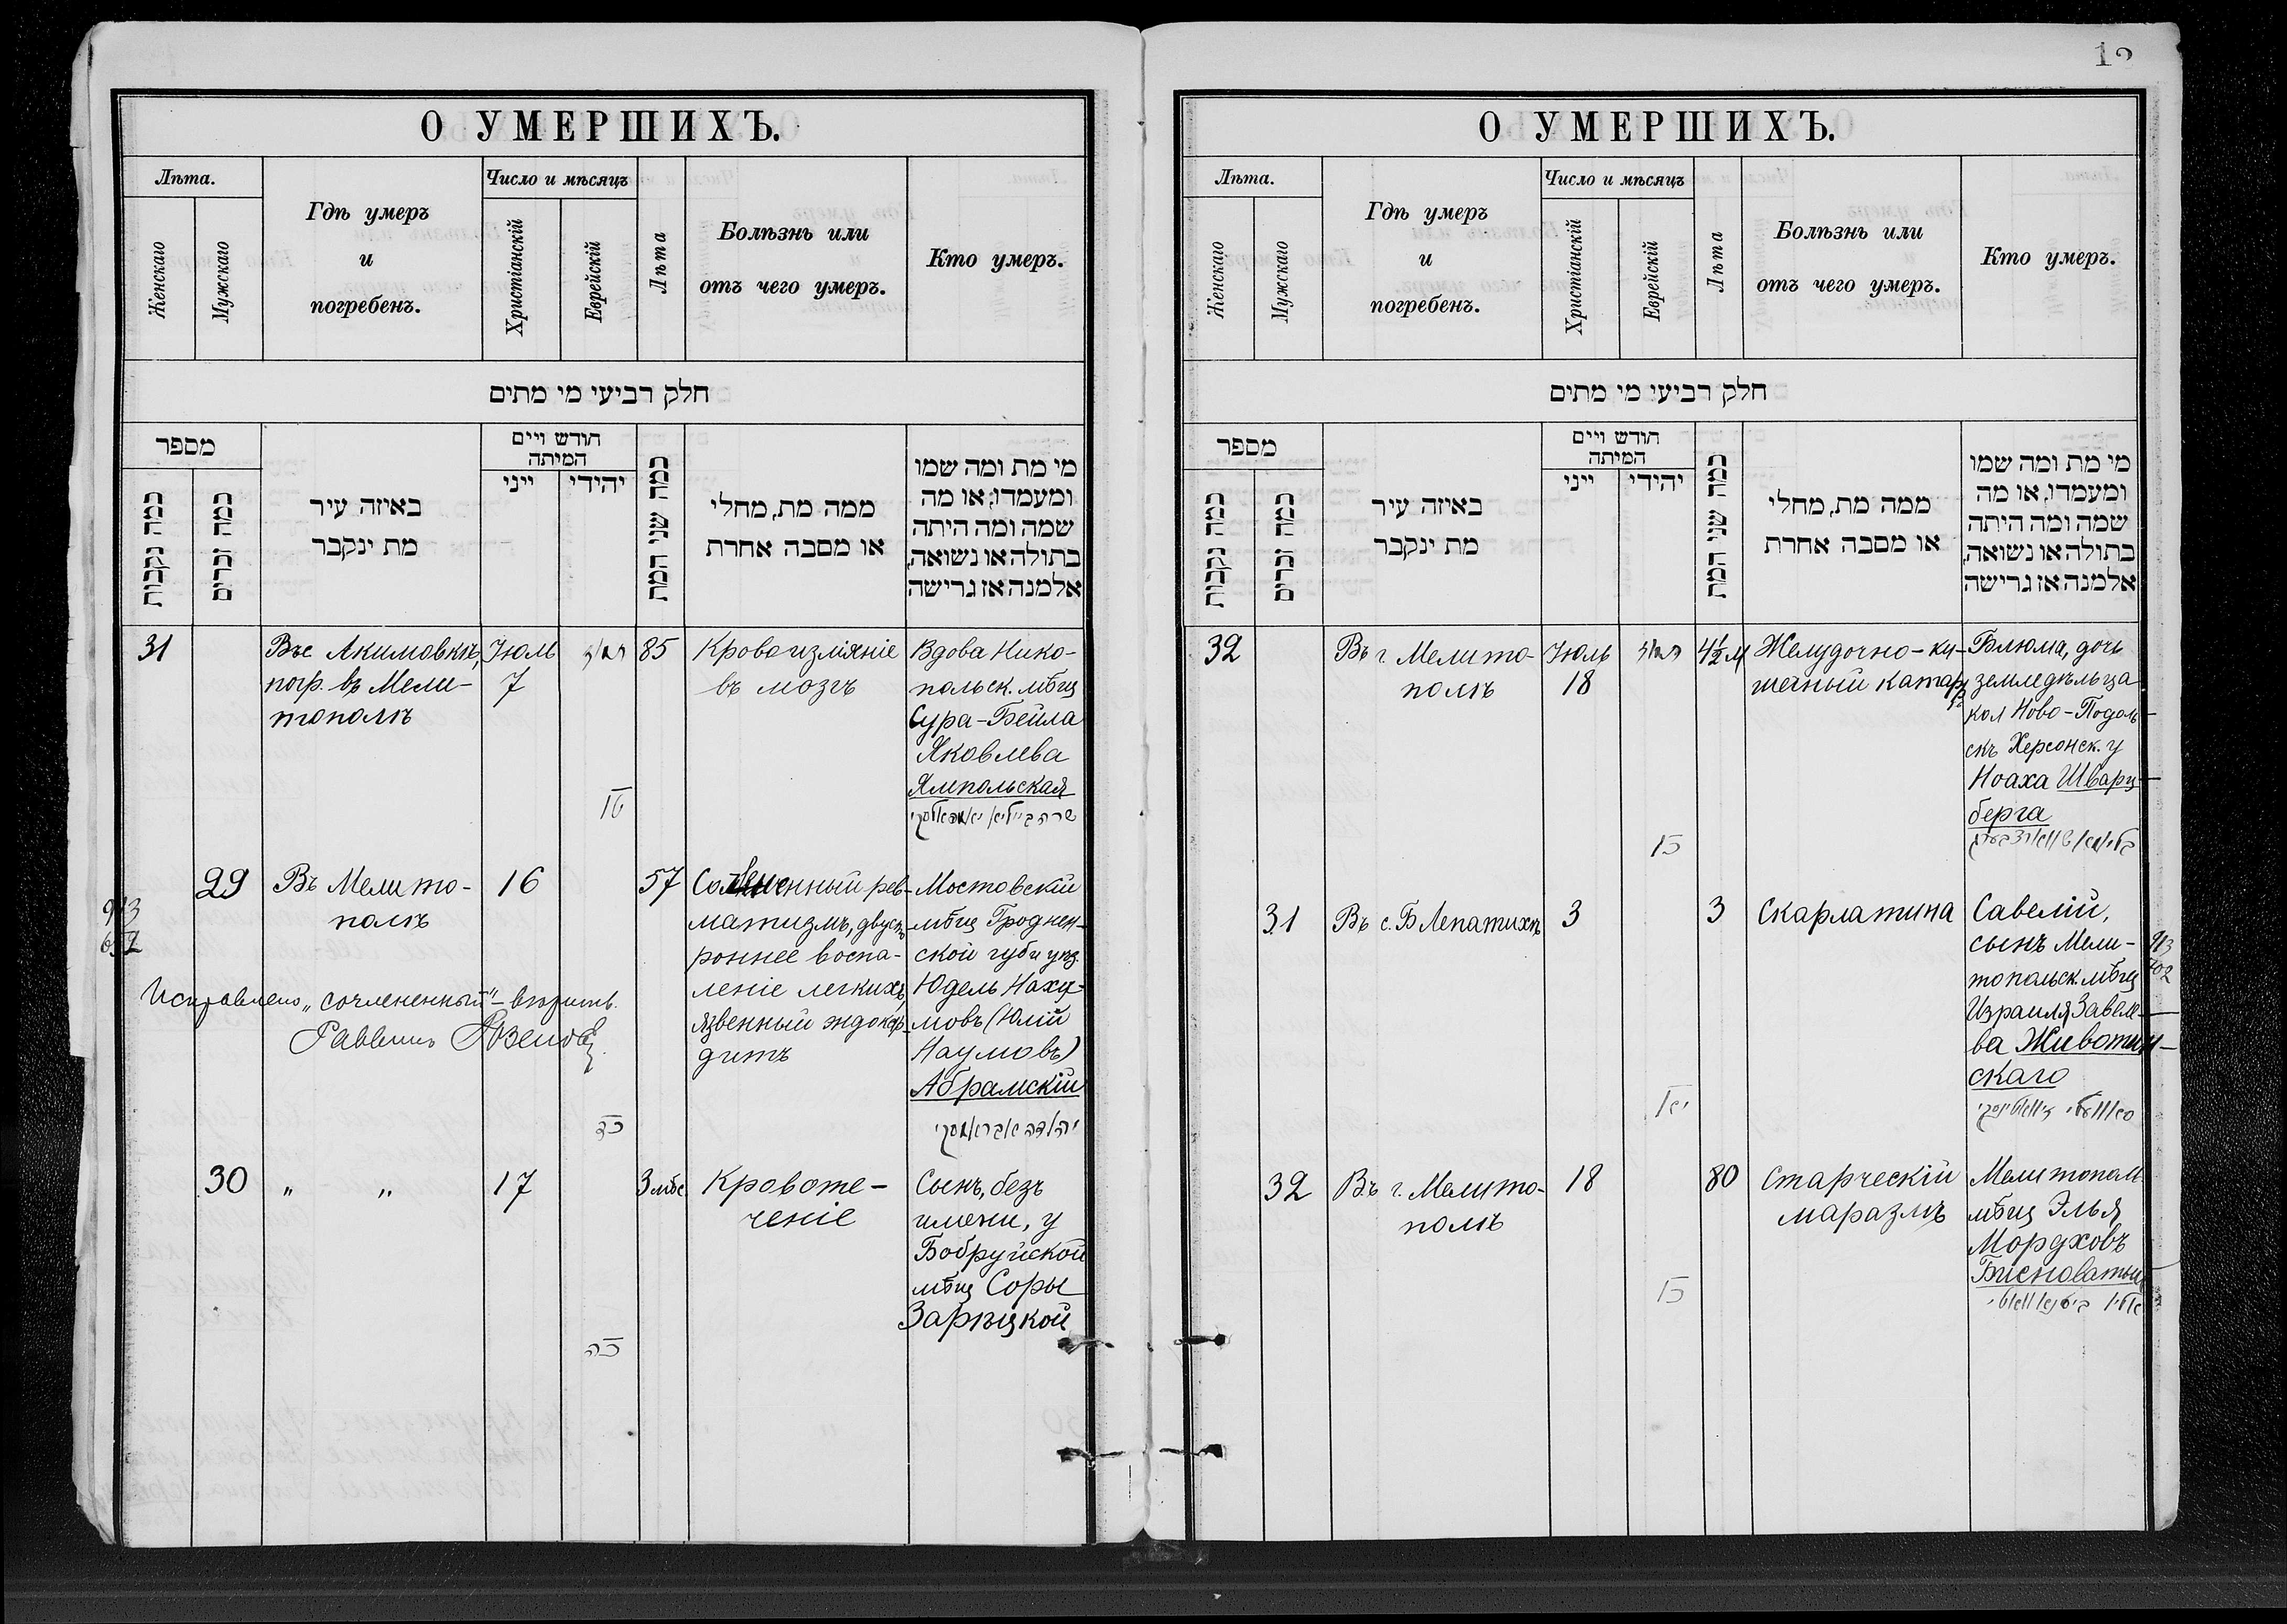 12
О УМЕРШИХЪ.
Лѣта.
Женскаго
Мужскаго
Гдѣ умеръ
и
погребенъ.
Число и мѣсяцъ
Христіанскій
Еврейскій
Лѣта
Болѣзнь или
отъ чего умеръ.
Кто умеръ.
חלק רביעי מי מתים
מספר
כמה נקבות
כמה זכרים
באיזה עיר
מת ינקבר
חודש ויים
המיתה
ייני
יהידי
כמה שני המת
ממה מת, מחלי
או מסבה אחרת
מי מת ומה שמו
ומעמדו, או מה
שמה ומה היתה
בתולה או נשואה,
אלמנה אז גרישה
31
Въ с Акимовкѣ,
погр. въ Мели-
тополѣ
Іюль
7
תמוז
טו
85
Кровоизліяніе
въ мозгъ
Вдова Нико-
польск. мѣщ
Сура-Бейла
Яковлева
Ямпольская
שרה ביילא יאמפאלסקי
29
Въ Мелито-
полѣ
16
כד
57
Сочлененный рев-
матизмъ, двуст-
роннее воспа-
леніе легкихъ,
язвенный эндокар-
дитъ
Мостовскій
мѣщ Гроднен-
ской губ и уѣз.
Юдель Наху-
мовъ (Юлій
Наумовъ)
Абрамскій
יהודה אבראמסקי
913
Исправлено „сочлененный“ – вѣрить.
Раввинъ
30
„ „
17
כה
3 мѣс
Кровоте-
ченіе
Сынъ, безъ
имени, у
Бобруйской
мѣщ Соры
Зарѣцкой
О УМЕРШИХЪ.
Лѣта.
Женскаго
Мужскаго
Гдѣ умеръ
и
погребенъ.
Число и мѣсяцъ
Христіанскій
Еврейскій
Лѣта
Болѣзнь или
отъ чего умеръ.
Кто умеръ.
חלק רביעי מי מתים
מספר
כמה נקבות
כמה זכרים
באיזה עיר
מת ינקבר
חודש ויים
המיתה
ייני
יהידי
כמה שני המת
ממה מת, מחלי
או מסבה אחרת
מי מת ומה שמו
ומעמדו, או מה
שמה ומה היתה
בתולה או נשואה,
אלמנה אז גרישה
32
Въ г. Мелито-
полѣ
Іюль
18
תמוז
4½ м
Желудочно-ки-
шечный катарръ
Блюма, дочь
земледѣльца
кол Ново-Подоль-
скъ Херсонск. у
Ноаха Шварц-
берга
בלומא שווארצבערג
31
Въ с. Б Лепатихѣ
3
3
Скарлатина
Савелій,
сынъ Мели-
топольск. мѣщ
Израиля Завеле-
ва Животин-
скаго
913
702
32
Въ г. Мелито-
полѣ
18
80
Старческій
маразмъ
Мелитопол.
мѣщ Элья
Мордховъ
Бисноватый